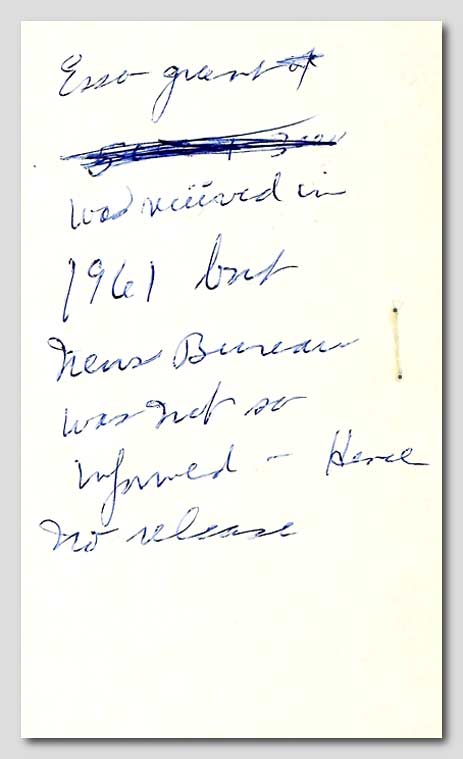 Esso grant of
was received in
1961 but
News Bureau
was not so
informed - Hence
no release